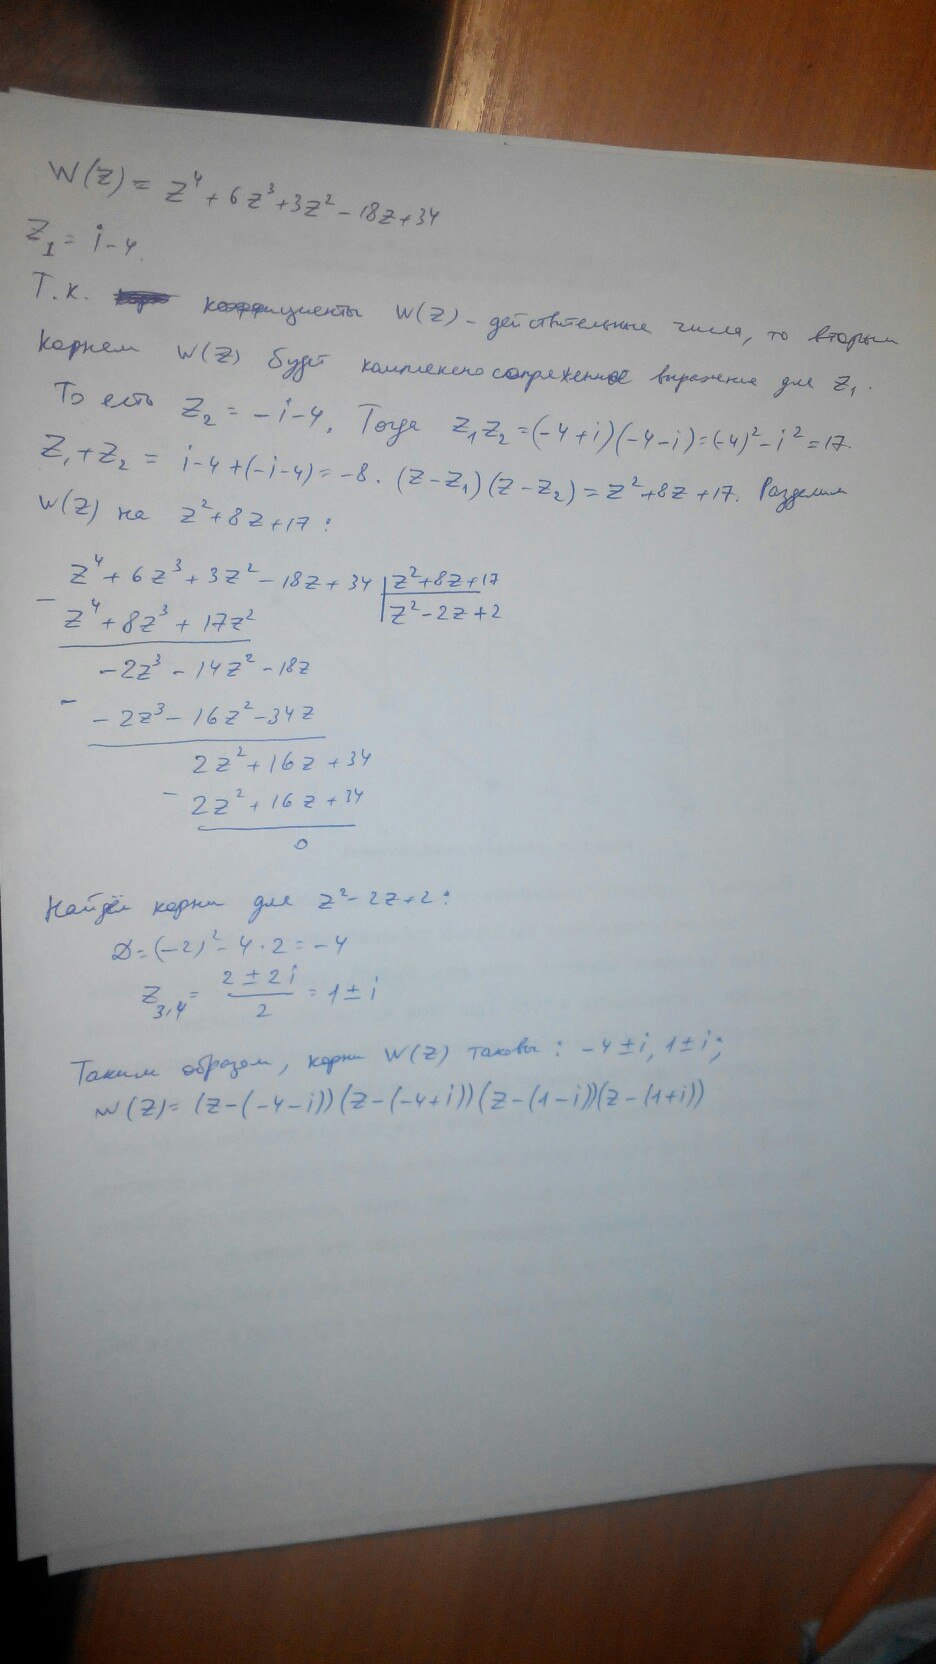 W(z) = z⁴ + 6z³ + 3z² - 18z + 34
z₁ = i - 4.
Т.к. коэффициенты W(z) - действительные числа, то вторым
корнем W(z) будет комплексно сопряженное выражение для z₁.
То есть z₂ = -i - 4. Тогда z₁z₂ = (-4+i)(-4-i) = (-4)² - i² = 17.
z₁ + z₂ = i - 4 + (-i - 4) = -8. (z - z₁)(z - z₂) = z² + 8z + 17. Разделим
W(z) на z² + 8z + 17:
z⁴ + 6z³ + 3z² - 18z + 34 | z² + 8z + 17
- z⁴ + 8z³ + 17z² | z² - 2z + 2
-2z³ - 14z² - 18z
- -2z³ - 16z² - 34z
2z² + 16z + 34
- 2z² + 16z + 34
0
Найдём корни для z² - 2z + 2:
D = (-2)² - 4·2 = -4
z₃,₄ = (2 ± 2i)/2 = 1 ± i
Таким образом, корни W(z) таковы: -4 ± i, 1 ± i;
W(z) = (z - (-4 - i))(z - (-4 + i))(z - (1 - i))(z - (1 + i))